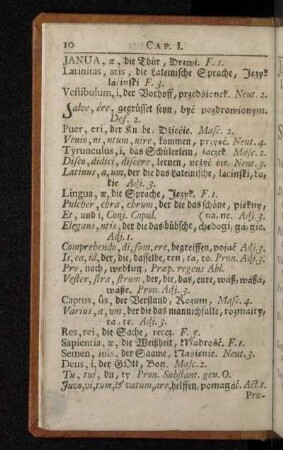 10 CAP. I.
JANUA, æ, die Thür, Drzwi. F. 1.
Latinitas, atis, die Lateinische Sprache, Język
łaciński F. 3.
Vestibulum, i, der Vorhoff, przedśionek. Neut. 2.
Salve, ére, gegrüsset seyn, być pozdrowionym.
Def. 2.
Puer, eri, der Knabe, Dźiećię. Masc. 2.
Venio, ni, ntum, nire, kommen, przyść. Neut. 4.
Tyrunculus, i, das Schülerlein, żaczek. Masc. 2.
Disco, didici, discere, lernen, uczyć śię. Neut. 3.
Latinus, a, um, der die das Lateinische, łaciński, ka,
kie Adj. 3.
Lingua, æ, die Sprache, Język. F. 1.
Pulcher, chra, chrum, der die das schöne, piękny,
Et, und i, Conj. Copul. (na, ne, Adj. 3.
Elegans, ntis, der die das hübsche, chędogi, ga, gie,
Adj. 1.
Comprehendo, di, sum, ere, begreiffen, pojąć Adj. 3.
Is, ea, id, der, die, dasselbe, ten, ta, to. Pron. Adj. 3.
Pro, nach, według, Præp. regens Abl.
Vester, stra, strum, der, die, das, eure, wasz, wasza,
wasze, Pron. Adj. 3.
Captus, ûs, der Verstand, Rozum, Masc. 4.
Varius, a, um, der die das mannichfalte, rozmaity,
ta, te, Adj. 3.
Res, rei, die Sache, rzecz. F. 5.
Sapientia, æ, die Weißheit, Mądrość. F. 1.
Semen, inis, der Saame, Naśienie. Neut. 3.
Deus, i, der GOtt, Bog. Masc. 2.
Tu, tui, du, ty Pron. Substant. gen. O.
Juvo, vi, tum, & vatum, are, helffen, pomagać. Act. 1.
Præ-